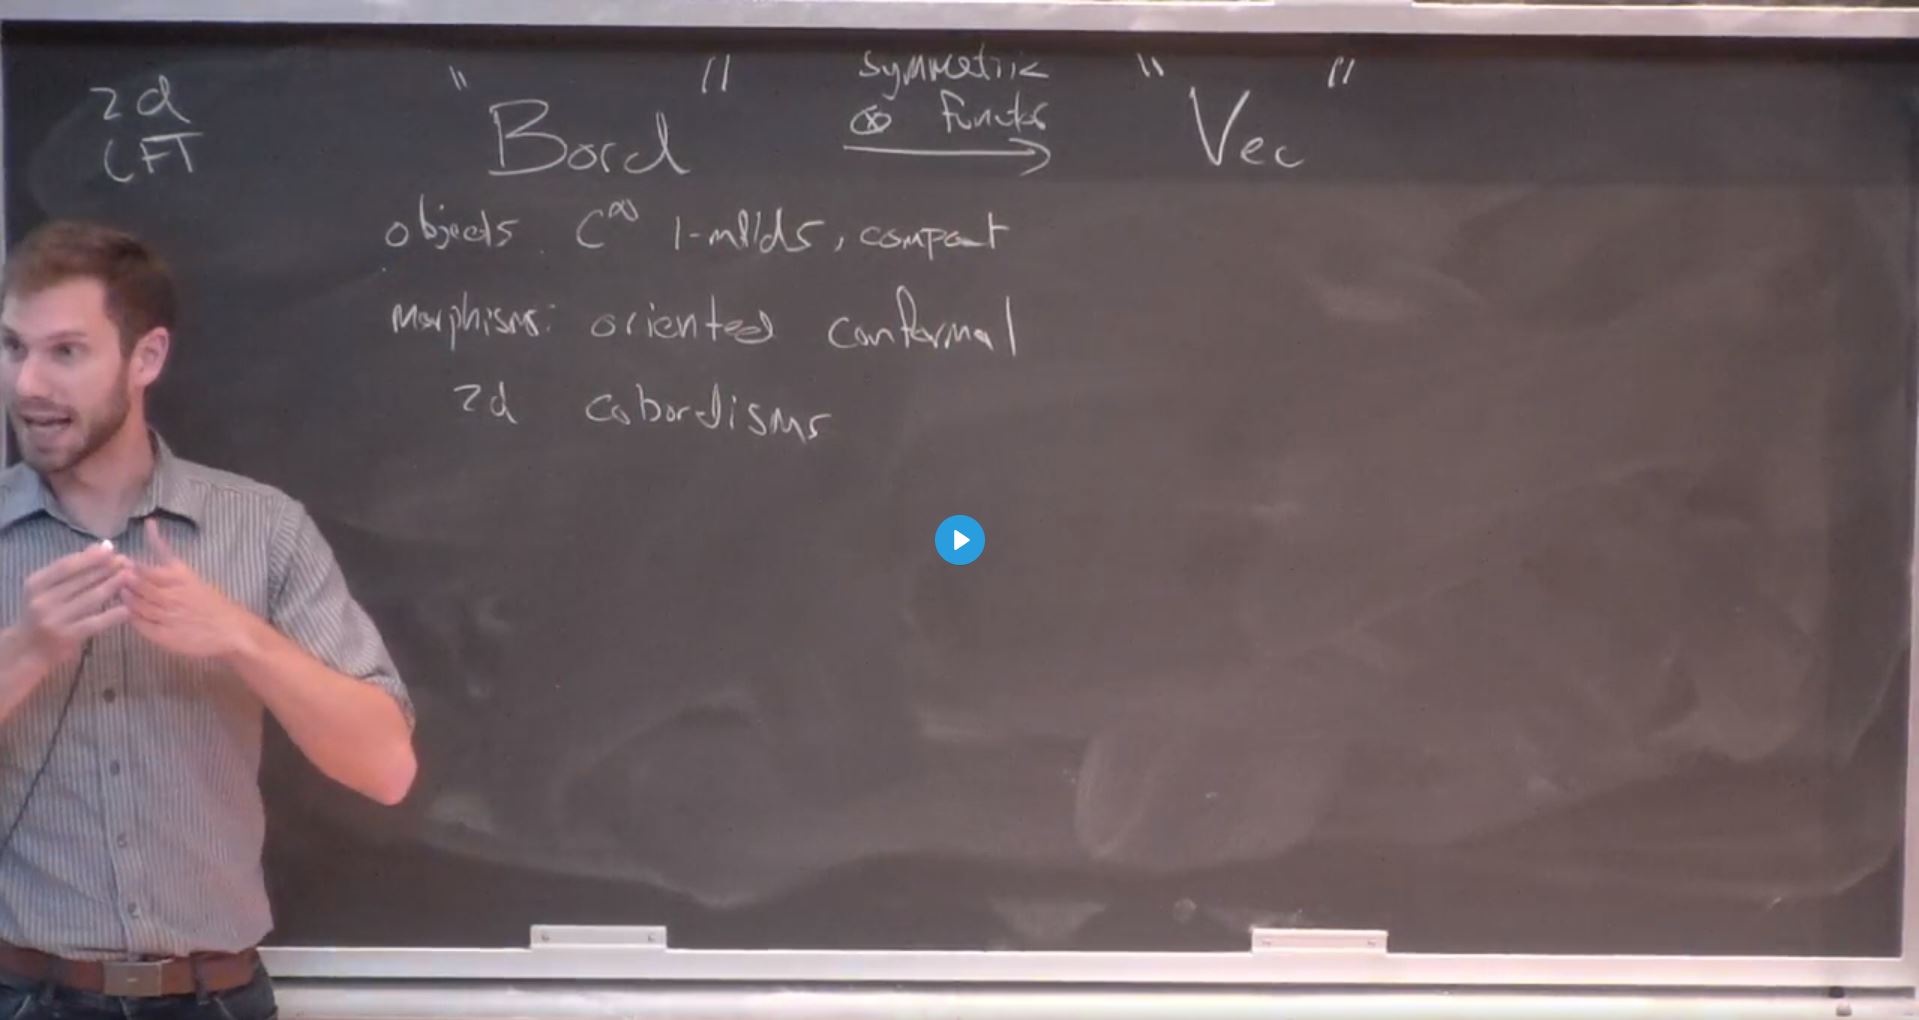 2d
CFT
"Bord" symmetric ⊗ functor → "Vec"
objects: C^∞ 1-mflds, compact
morphisms: oriented conformal
2d cobordisms